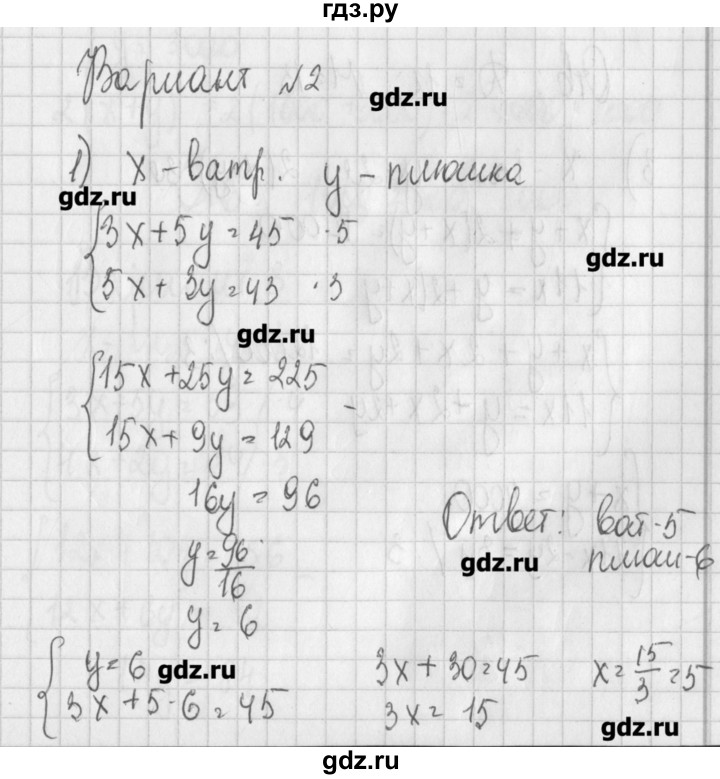 гдз.ру
Вариант №2
gdz.ru
1) x - ватр. y - плюшка
gdz.ru
3x+5y=45 ·5
gdz.ru
5x+3y=43 ·3
gdz.ru
15x+25y=225
-
15x+9y=129
16y=96
Ответ: ват-5
плюш-6
gdz.ru
y=96/16
y=6
y=6
gdz.ru
3x+5·6=45
3x+30=45
3x=15
x=15/3=5
gdz.ru
gdz.ru